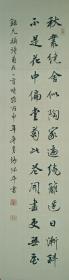 秋叢繞舍似陶家遍繞籬邊日漸斜
不是花中偏愛菊此花開盡更無花
元稹詩菊花一首丙申年書